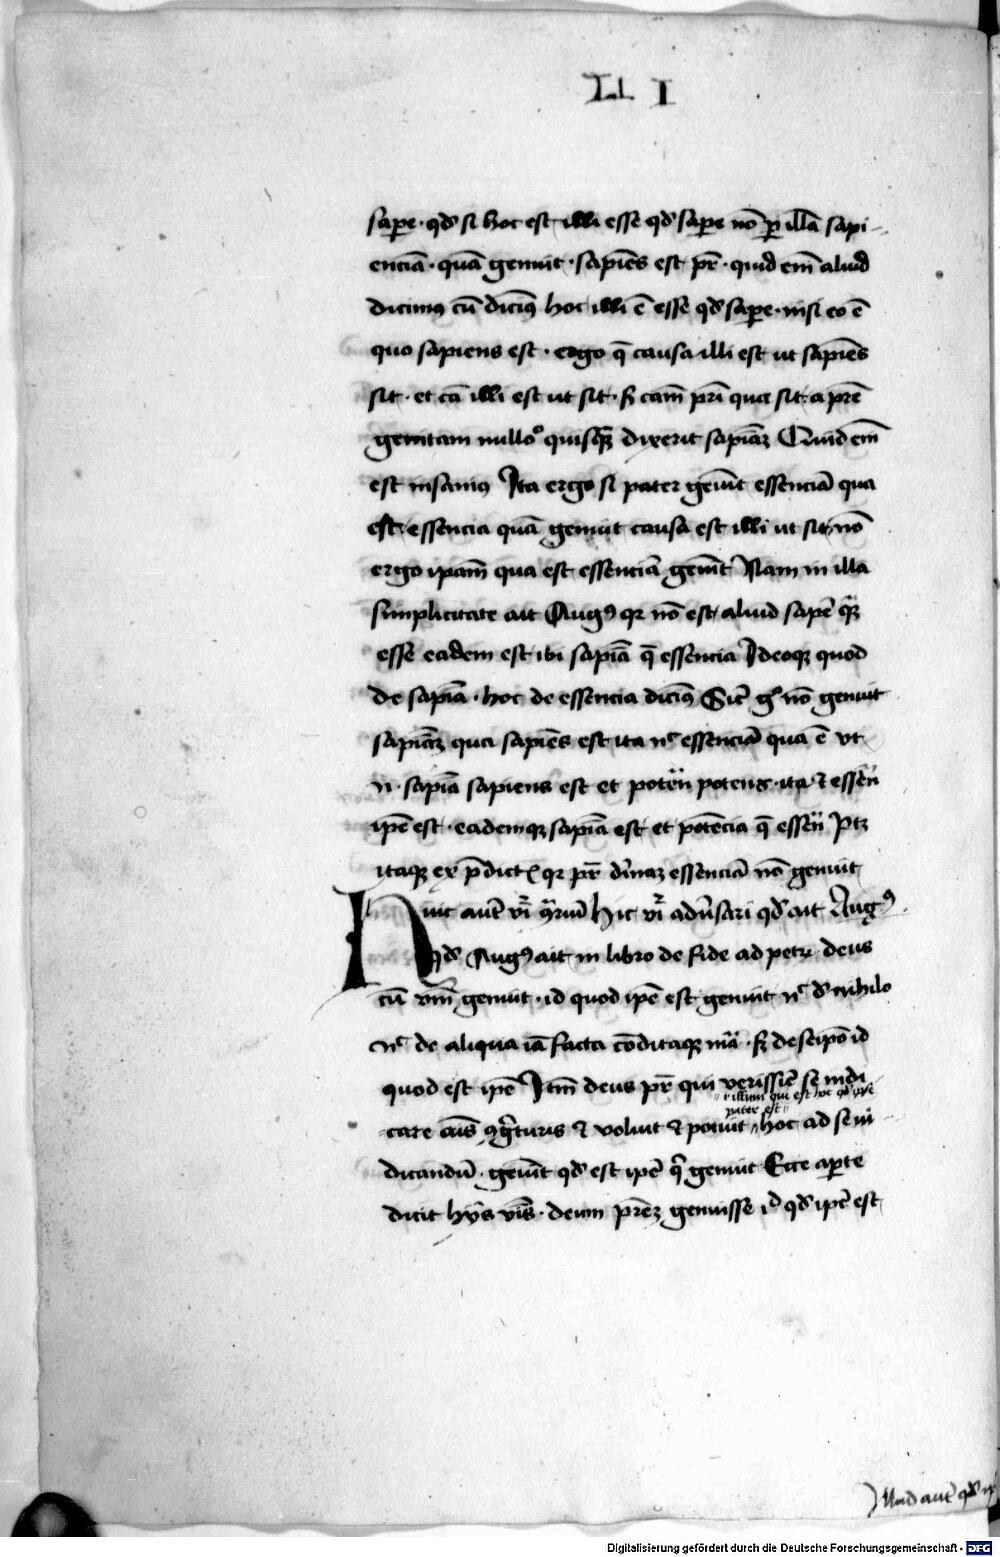 LI I
sape · qd si hoc est illi esse qd sape nō p illā sapi-
enciā · quā genuit · sapiēs est pr̄ · quid em̄ aliud
dicimus cū dicimꝰ hoc illi ē esse qd sape · nisi eo ē
quo sapiens est · ergo q̄ causa illi est ut sapiēs
sit · et cā illi est ut sit · cam̄ pri qua sit a pre
genitam nullo quisqȝ dixerit sapiaȝ Quid em̄
est insaniꝰ Ita ergo si pater genuit essenciā qua
est essencia quā genuit causa est illi ut sit nō
ergo ipam̄ qua est essenciā genuit Nam in illa
simplicitate ait Augꝰ qr nō est aliud sape qȝ
esse eadem est ibi sapiā q̄ essencia Ideoqȝ quod
de sapiā · hoc de essencia dicimꝰ Sic̄ gº nō genuit
sapiaȝ qua sapiēs est ita nc essenciā qua ē Ut
n · sapiā sapiens est et poten̄ potens · ita & essen̄
ipe est · eademqȝ sapiā est et potēcia q̄ essen̄ Ptȝ
itaqȝ ex p̄dictꝭ qr pr̄ diuinaȝ essenciā nō genuit
Huic aut vr̄ ꝯriū hic vr̄ aduersari qd ait Augꝰ
qd Augꝰ ait in libro de fide ad petrū deus
cū vnū genuit · id quod ipe est genuit nc de nichilo
nc de aliqua iā facta cōditaqȝ mā · sȝ de seipō id
quod est ipe Itm̄ deus pr̄ qui verissie se indi
illum qui est hoc qd ipe
pater est
care aīs ꝯgituris & voluit & potuit hoc ad se in
dicandū · genuit qd est ipe q̄ genuit Ecce apte
dicit hijs v̄bis · deum prēȝ genuisse id qd ipe est
Illud aut qd